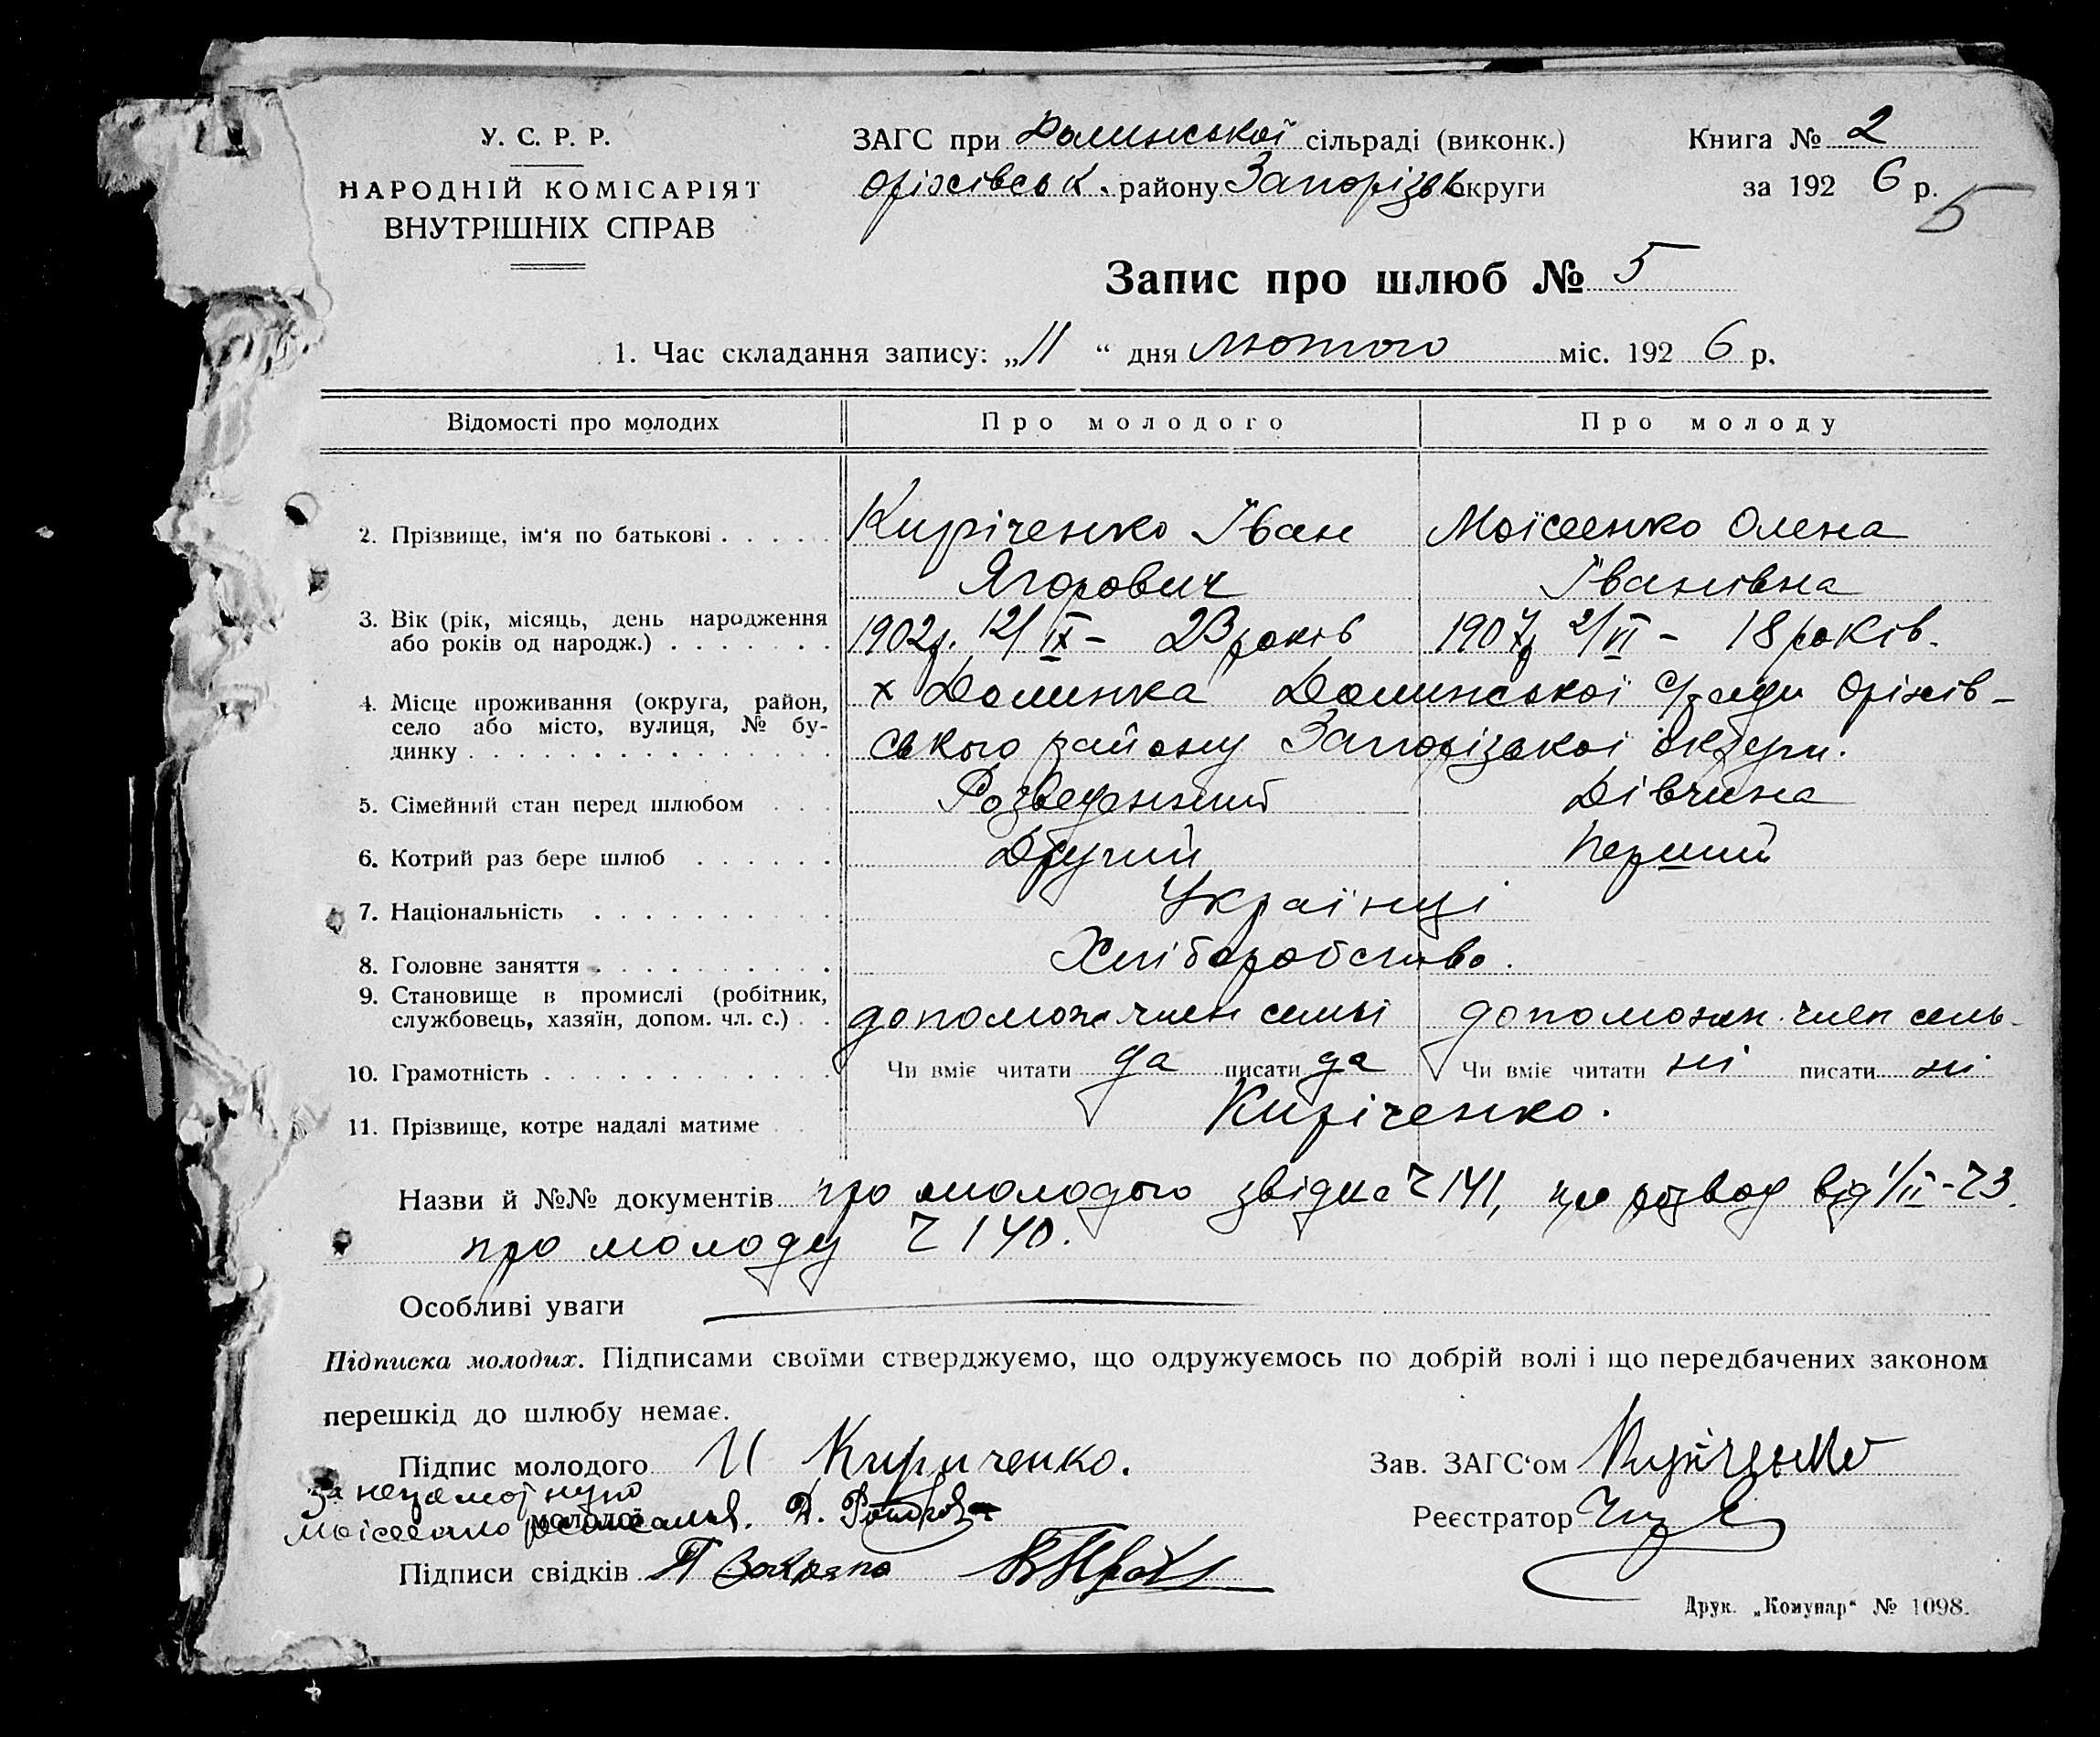 У. С. Р. Р.
НАРОДНІЙ КОМІСАРІЯТ
ВНУТРІШНІХ СПРАВ
ЗАГС при Долинської сільраді (виконк.)
Оріхівськ. району Запорізьк округи
Книга № 2
за 1926 р.
5
Запис про шлюб № 5
1. Час складання запису: „11“ дня лютого міс. 1926 р.
Відомості про молодих Про молодого Про молоду
2. Прізвище, ім'я по батькові . . . . . Киріченко Іван Моїсеенко Олена
Ягорович Іванівна
3. Вік (рік, місяць, день народження
або років од народж.) . . . . . . . 1902р. 12/IX – 23 років 1907р 2/VI – 18 років.
4. Місце проживання (округа, район, х Долинка Долинської с/ради Оріхів-
село або місто, вулиця, № бу-
динку . . . . . . . . . . . . . . ського району Запорізької округи.
5. Сімейний стан перед шлюбом . . . Розведенний Дівчина
6. Котрий раз бере шлюб . . . . . . Другий Перший
7. Національність . . . . . . . . . . Українці
8. Головне заняття . . . . . . . . . . Хліборобство.
9. Становище в промислі (робітник,
службовець, хазяїн, допом. чл. с.) . . допомож член семьі допоможн. член семь-
10. Грамотність . . . . . . . . . . . . Чи вміє читати да писати да Чи вміє читати ні писати ні
11. Прізвище, котре надалі матиме . . Киріченко.
Назви й №№ документів про молодого звідка Ч 141, про розвод від 1/II-23.
про молоду Ч 140.
Особливі уваги
Підписка молодих. Підписами своїми стверджуємо, що одружуємось по добрій волі і що передбачених законом
перешкід до шлюбу немає.
Підпис молодого И Кириченко.
за неграмотную
Моісеенко росписался. Д.
молодої
Підписи свідків П
Зав. ЗАГС'ом Киріченко
Реєстратор
Друк. „Комунар“ № 1098.